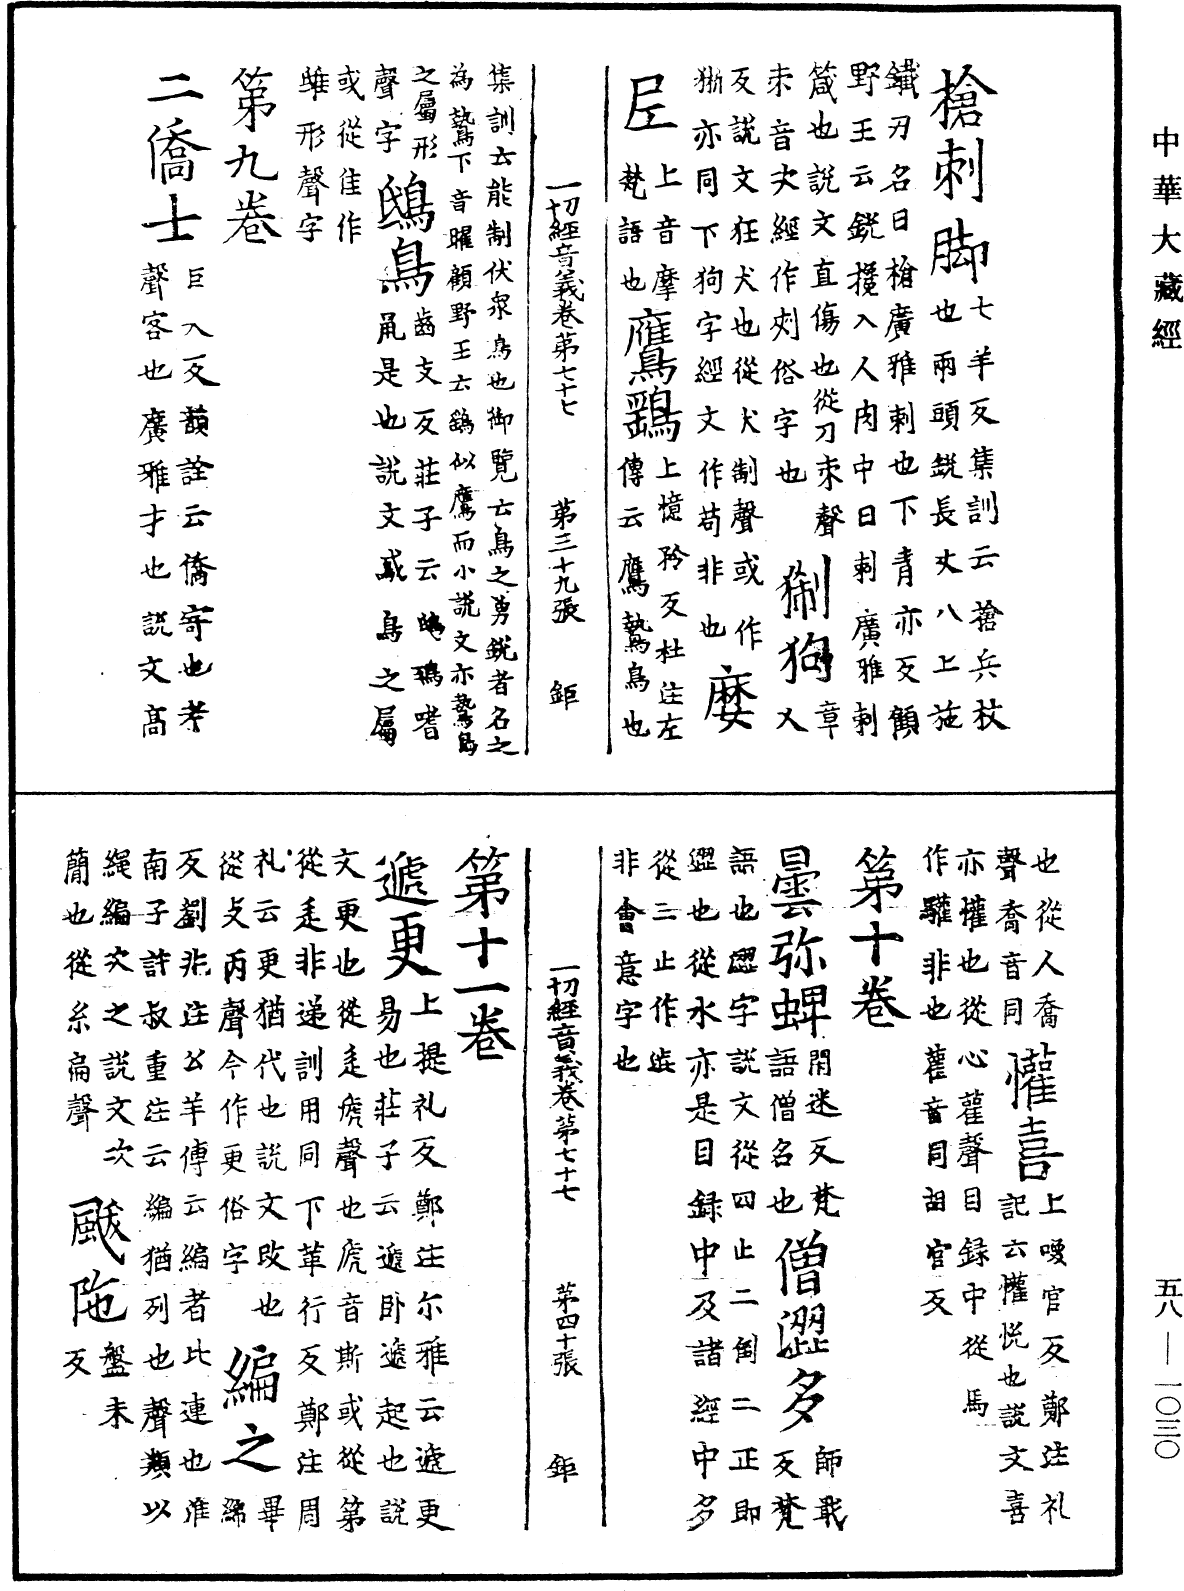 中華大藏經
槍刺脚七羊反集訓云槍兵杖
也兩頭銳長丈八上施
鐵刃名曰槍廣雅刺也下青亦反顧
野王云銳攙入人肉中曰刺廣雅刺
箴也說文直傷也從刀朿聲 猘狗章
朿音次經作刾俗字也
反說文狂犬也從犬制聲或作
狾亦同下狗字經文作苟非也 麼
𡰱上音摩
梵語也 鷹鸐上憶矜反杜注左
傳云鷹鷙鳥也
一切經音義卷第七十七 第三十九張 鉅
集訓云能制伏衆鳥也御覽云鳥之勇銳者名之
為鷙下音曜顧野王云鷂似鷹而小說文亦鷙鳥
之屬形
聲字 鴟鳥齒支反莊子云鴟鵶嗜
鼡是也說文鳶鳥之屬
或從隹作
雎形聲字
第九卷
二僑士巨乂反韻詮云僑寄也考
聲客也廣雅才也說文高
也從人喬
聲喬音同 懽喜上喚官反鄭注礼
記云懽悅也說文喜
亦懽也從心雚聲目錄中從馬
作驩非也雚音同胡官反
第十卷
曇弥蜱閇迷反梵
語僧名也 僧澀多師戢
反梵
語也澀字說文從四止二倒二正即
澀也從水亦是目録中及諸經中多
從三止作澁
非會意字也
一切經音義卷第七十七 第四十張 鉅
第十一卷
遞更上提礼反鄭注尔雅云遞更
易也莊子云遞卧遞起也說
文更也從辵虒聲也虒音斯或從第
從辵非遞訓用同下革行反鄭注周
礼云更猶代也說文改也 編之畢
從攴丙聲今作更俗字 綿
反劉兆注公羊傳云編者比連也淮
南子許叔重注云編猶列也聲類以
繩編次之說文次
簡也從糸扁聲 颰陁盤末
反
五八—一〇三〇